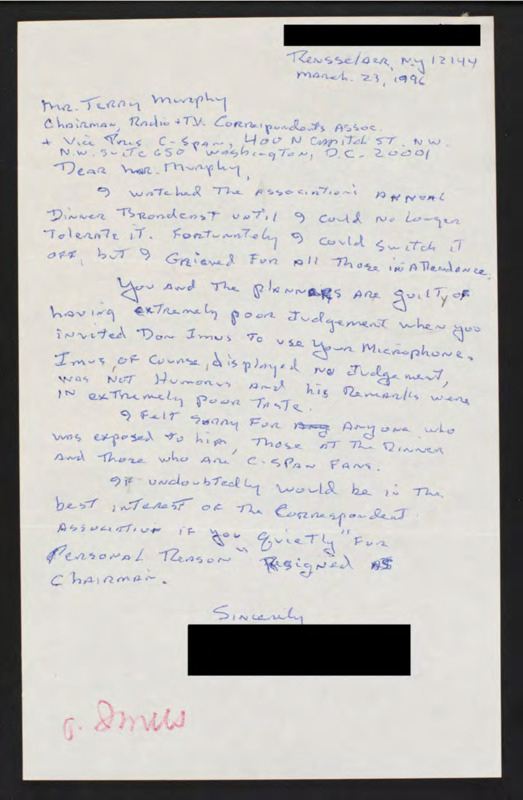 Rensselaer, N.Y 12144
March. 23, 1996
Mr. Terry Murphy
Chairman, Radio + TV. Correspondents Assoc.
+ Vice Pres C-Span, 400 N Capitol ST. N.W.
N.W. Suite 650 Washington, D.C. 20001
Dear Mr. Murphy,
I watched the Association's Annual
Dinner Broadcast until I could no longer
tolerate it. Fortunately I could switch it
off, but I grieved for all those in attendence.
You and the planners are guilty of
having extremely poor judgement when you
invited Don Imus to use your microphone.
Imus, of course, displayed no judgement,
was not humorus and his remarks were
in extremely poor taste.
I felt sorry for anyone who
was exposed to him, those at the dinner
and those who are C-SPAN fans.
It undoubtedly would be in the
best interest of the Correspondent
Association if you quietly "for
personal reason" resigned as
Chairman.
Sincerely
Imus